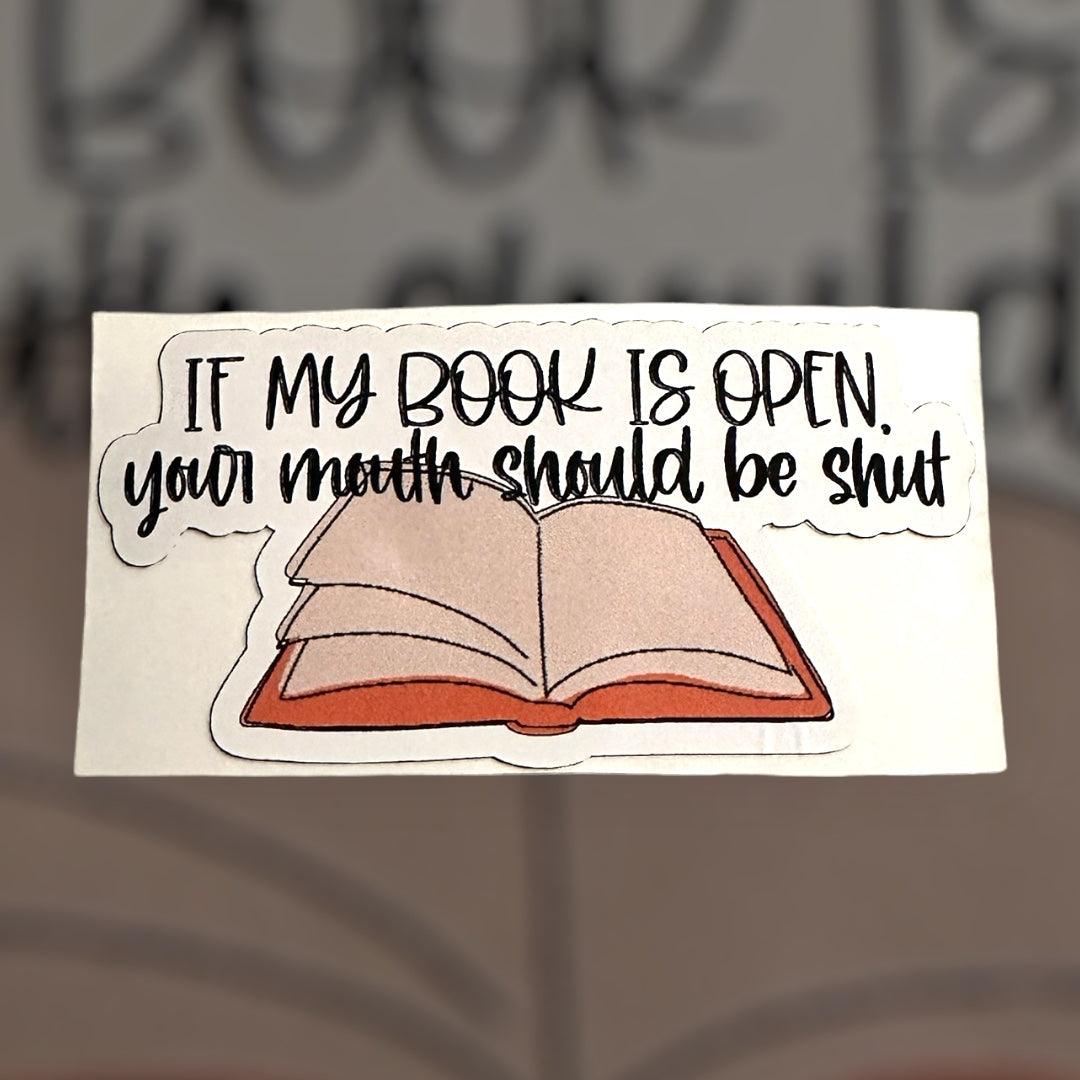 IF MY BOOK IS OPEN,
your mouth should be shut